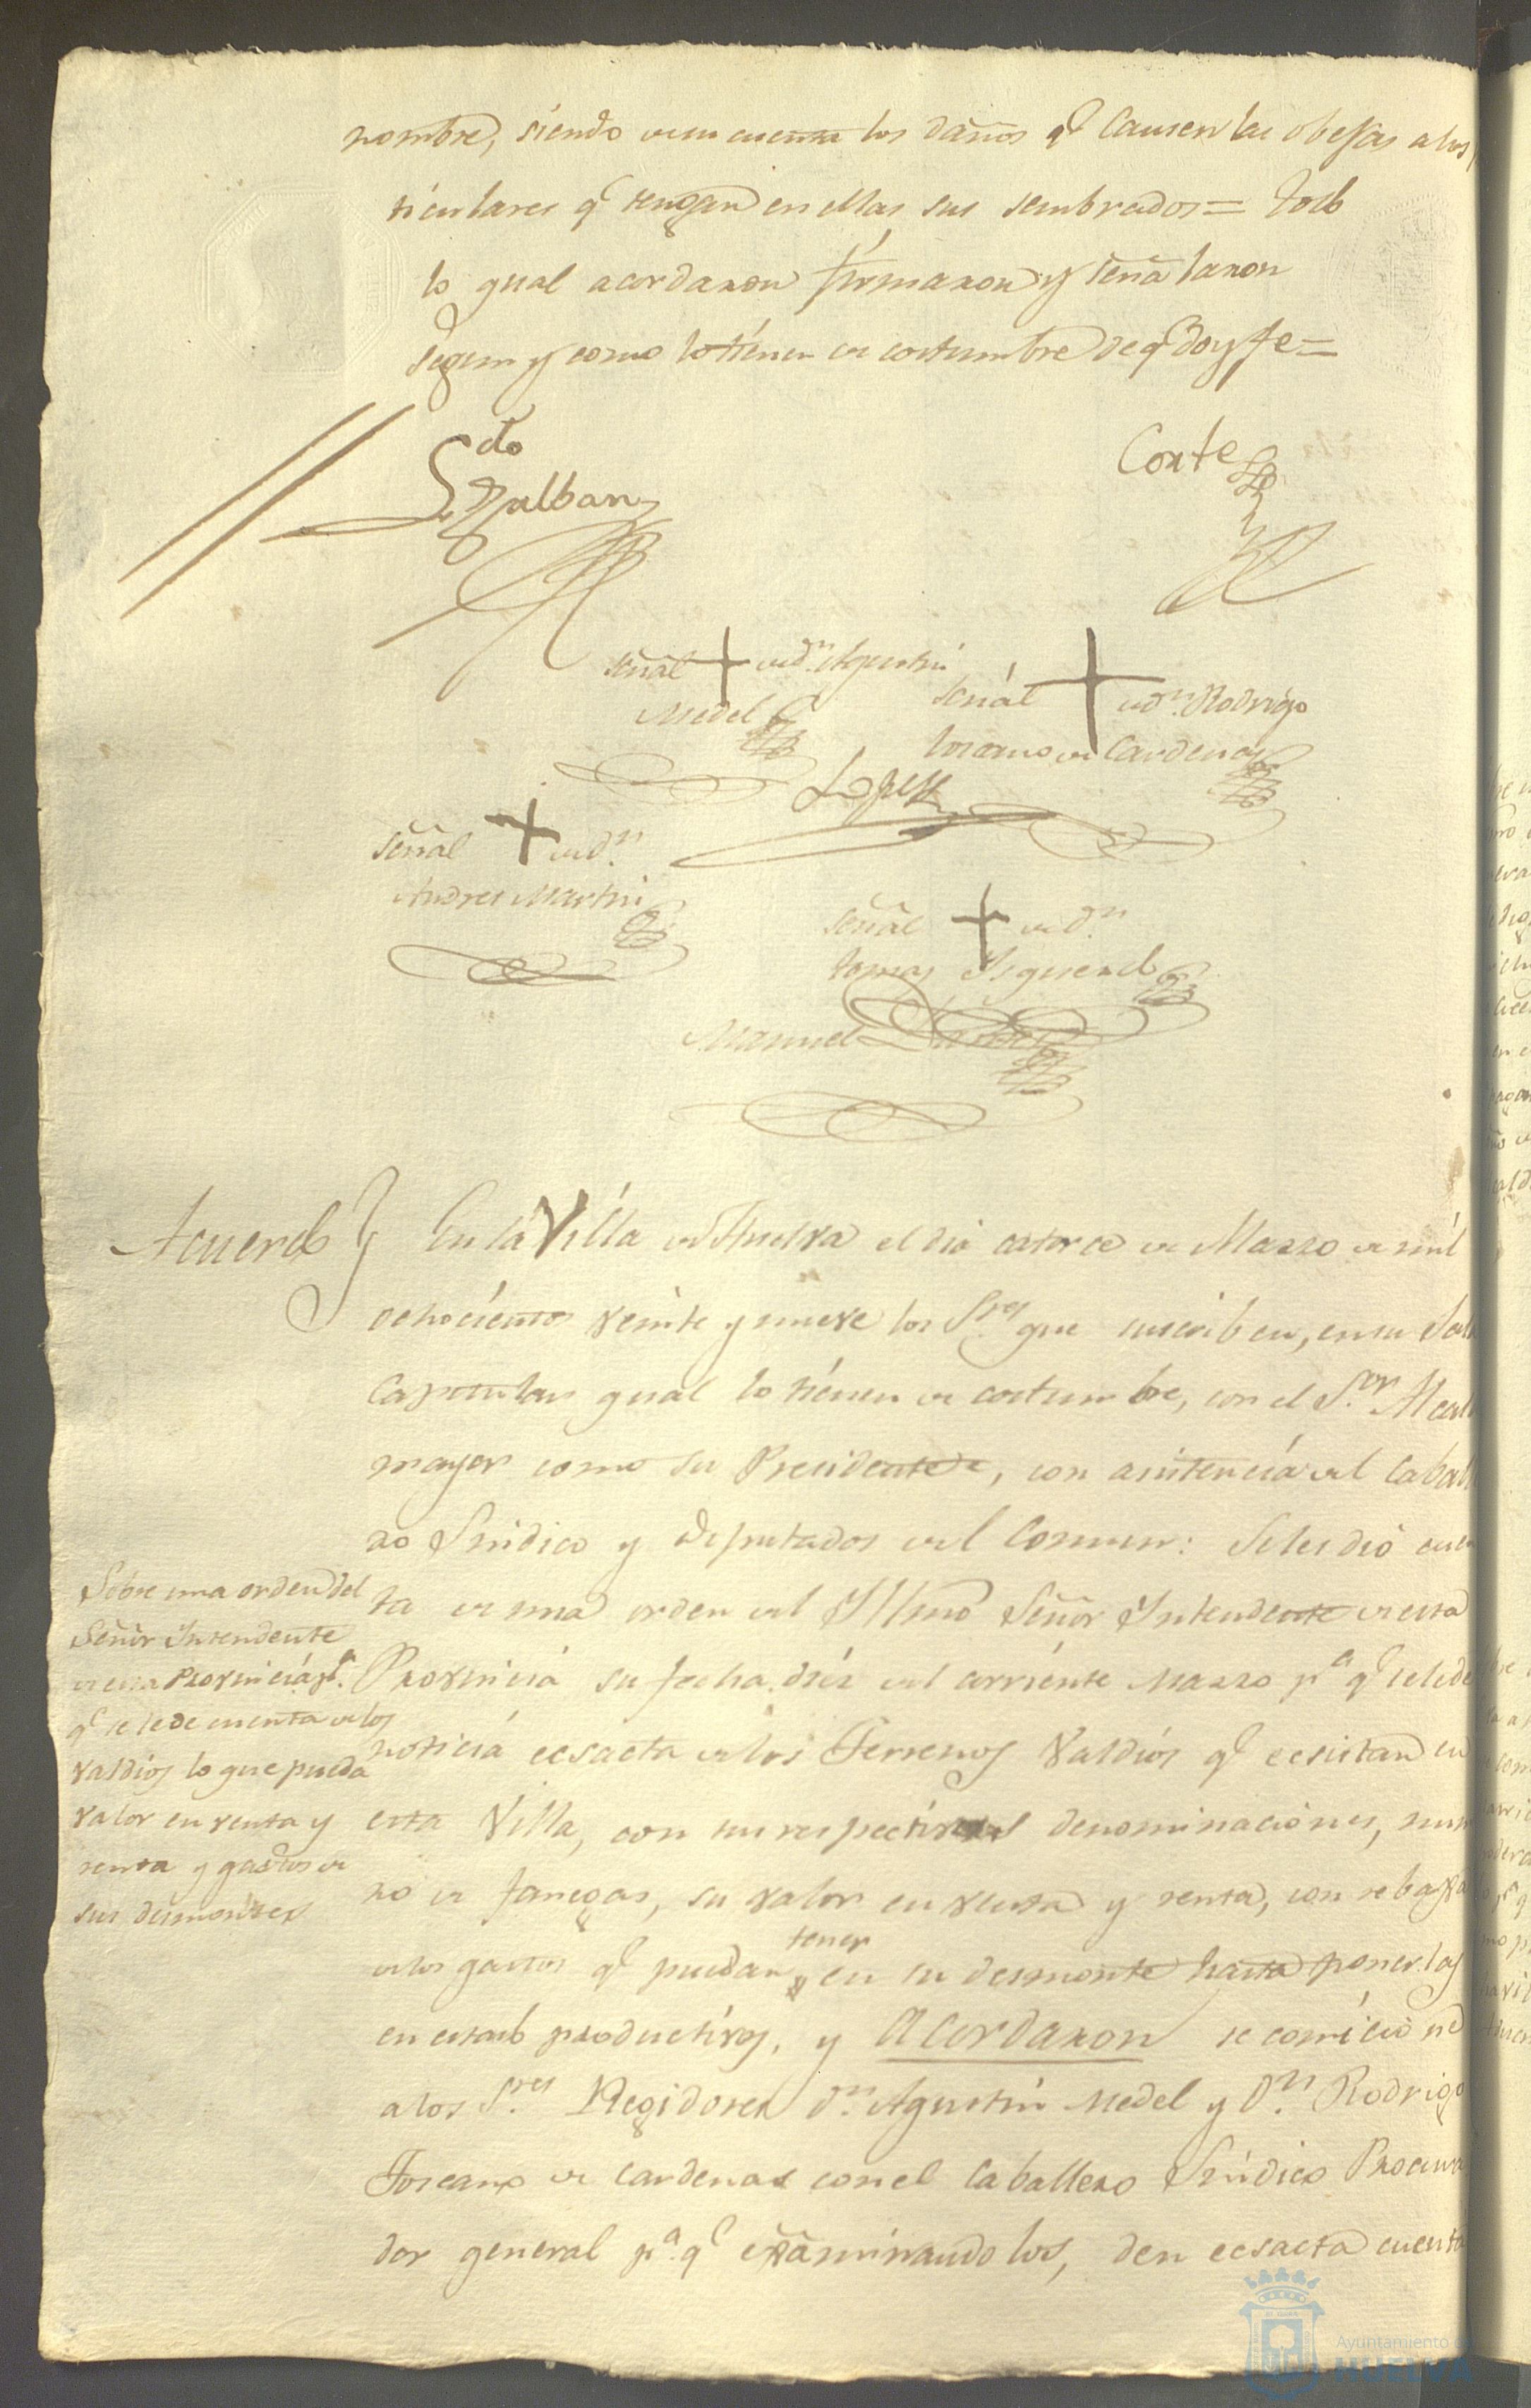 nombre, siendo de su cuenta los daños qᵉ Causen las obejas a los
ticulares qᵉ tengan en ellas sus sembrados = todo
lo qual acordaron firmaron y señalaron
segun y como lo tienen de costumbre de qᵉ doy fe =
Galban
Corte
señal + de dⁿ Agustin
Medel
señal + de dⁿ Rodrigo
toscano de Cardenas
Lopez
señal + de dⁿ
Andres Martin
señal + de dⁿ
tomas Ysquierdo
Manuel
Acuerdo
En la Villa de Huelva el dia catorce de Marzo de mil
ochocientos veinte y nueve los Sʳᵉˢ que suscriben, en su Sala
Capitular qual lo tienen de costumbre, con el Sᵒʳ Alcal
mayor como su Presidente, con asistencia del Caball
ro Sindico y Diputados del Comun: Se les dió cuen
ta de una orden del Yllmo Señor Yntendente de esta
Provincia su fecha diez del corriente Marzo pᵃ qᵉ se le de
noticia ecsacta de los Terrenos Valdios qᵉ ecsistan en
esta Villa, con sus respectivas denominaciones, nume
ro de fanegas, su valor en venta y renta, con rebaja
de los gastos qᵉ puedan tener en su desmonte hasta ponerlos
en estado productivos, y Acordaron se comicione
a los Sʳᵉˢ Regidores Dⁿ Agustin Medel y Dⁿ Rodrigo
Toscano de Cardenas con el Caballero Sindico Procura
dor general pᵃ qᵉ examinandolos, den ecsacta cuenta
Sobre una orden del
Señor Yntendente
de esta Provincia pᵃ
qᵉ se le de cuenta de los
valdios lo que pueda
valor en venta y
renta y gastos de
sus desmontes
Ayuntamiento de
HUELVA